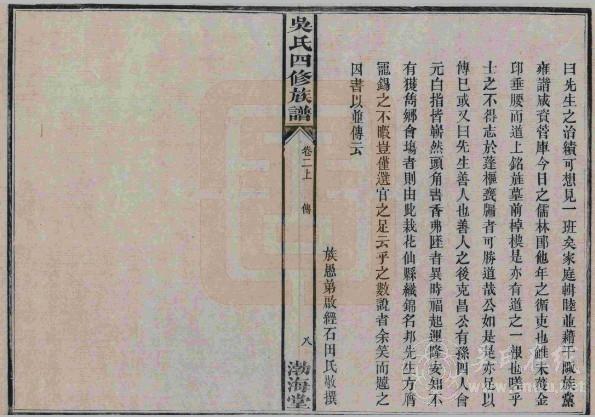 曰先生之治績可想見一班矣家庭輯睦並藉
族黨
雍諧咸資管庫今日之儒林郎他年之循吏也雖未黃金
印垂腰而道上銘旌墓前棹楔是亦有道之一
也嗟乎
士之不得志於蓬樞甕牖者可勝道哉公如是是亦足以
傳巳或又曰先生善人也善人之後克昌公有孫四人會
元白指皆嶄然頭角書香弗匪者異時福起運隆安知不
有獲雋鄉會塲者則由此栽花仙縣織錦名邦先生方膺
寵錫之不暇豈僅選官之足云乎之數說者余笑而
之
因書以並傳云
族愚弟啟經石田氏敬撰
吳氏四修族譜
卷二上
傳
八
渤海堂